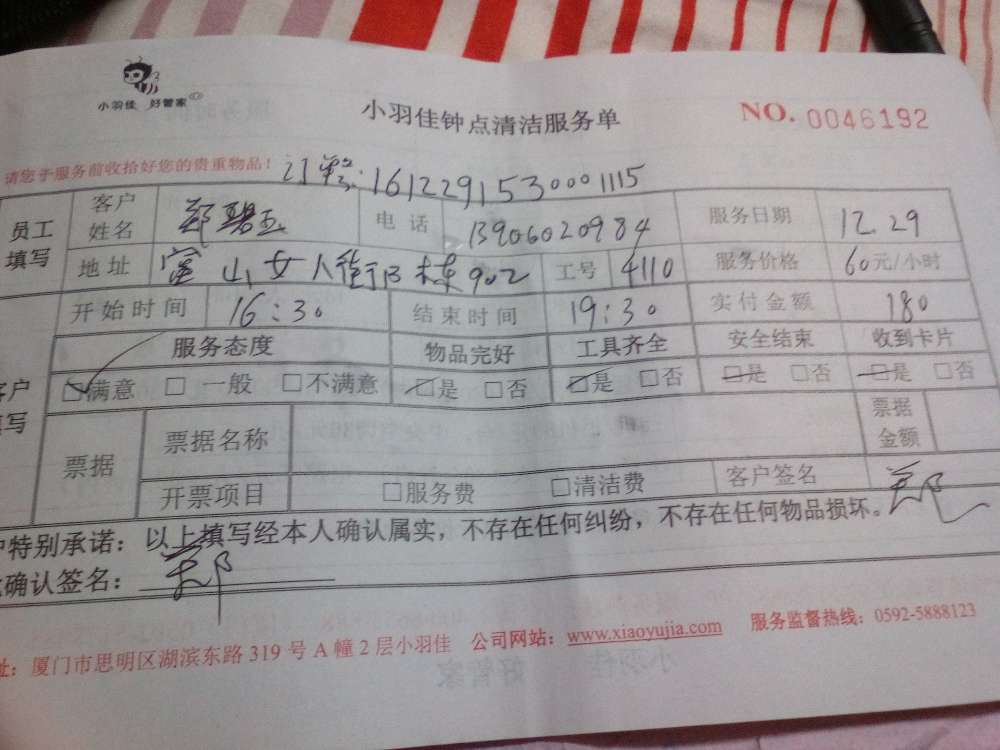 小羽佳 好管家
小羽佳钟点清洁服务单
NO. 0046192
请您于服务前收拾好您的贵重物品!
订单号:1612291530001115
员工填写 客户姓名 郑碧玉 电话 13906020984 服务日期 12.29
地址 富山女人街B栋902 工号 4110 服务价格 60元/小时
开始时间 16:30 结束时间 19:30 实付金额 180
服务态度 物品完好 工具齐全 安全结束 收到卡片
客户填写 ☑满意 □一般 □不满意 ☑是 □否 ☑是 □否 ☑是 □否 ☑是 □否
票据 票据名称 票据金额
开票项目 □服务费 □清洁费 客户签名 郑
户特别承诺:以上填写经本人确认属实,不存在任何纠纷,不存在任何物品损坏。
确认签名:郑
址:厦门市思明区湖滨东路 319 号 A 幢 2 层小羽佳 公司网站:www.xiaoyujia.com 服务监督热线:0592-5888123